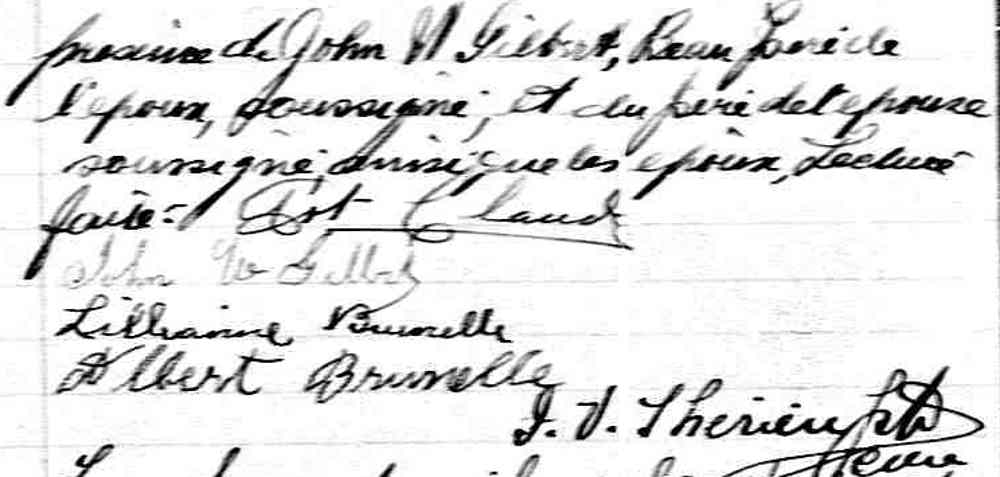 presence de John W Gilbert, Beau Père de
l'epoux, soussigné, et du père de l'epouse
soussigné, ainsi que les epoux, Lecture
faite.
John W Gilbert
Lillianne Brunelle
Albert Brunelle
J. V. Therien ptr